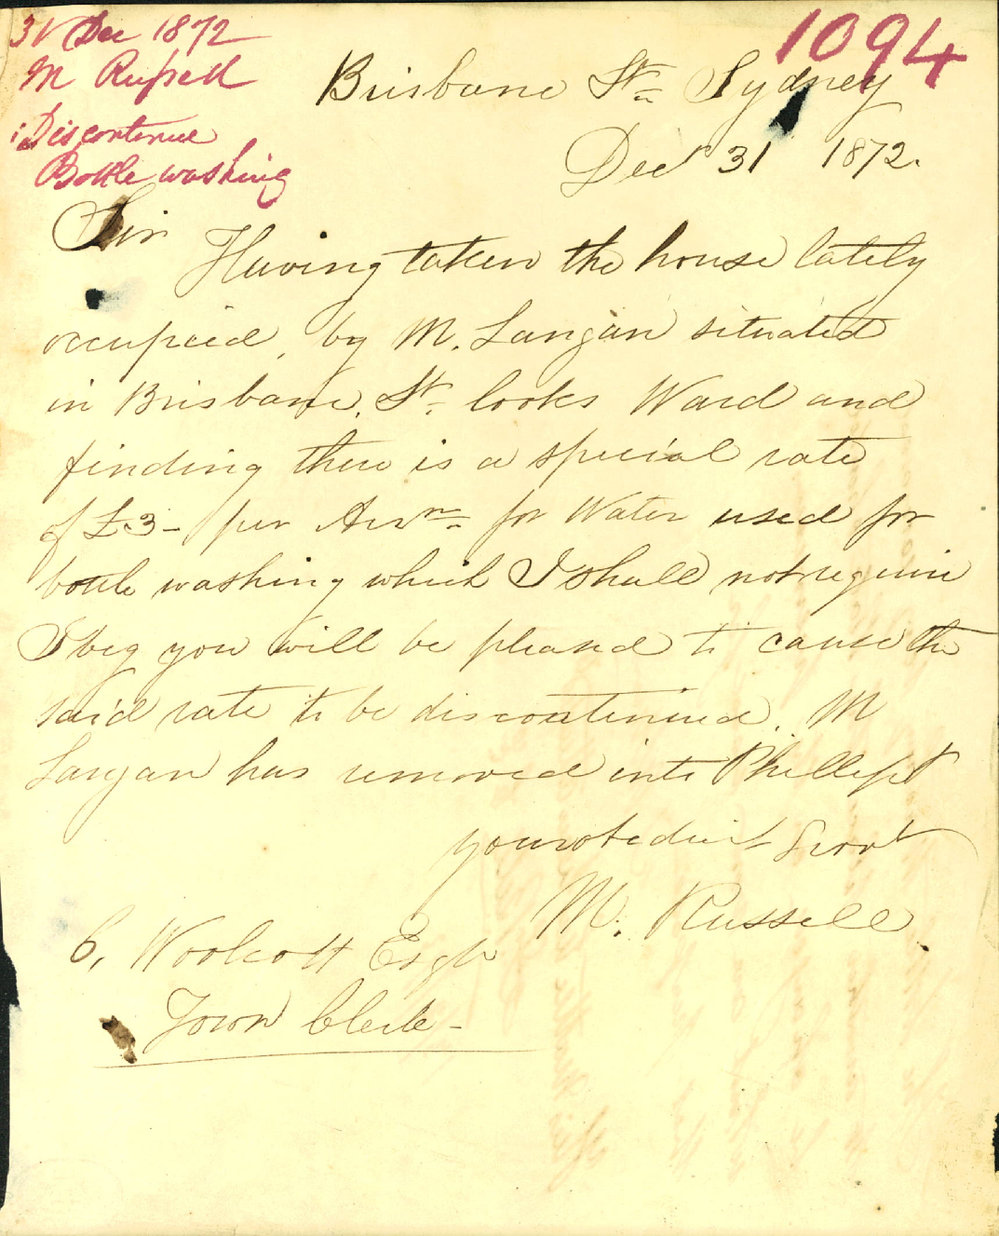 31 Dec 1872
M Russell
Discontinue
Bottle washing
1094
Brisbane St. Sydney
Dec 31 1872.
Sir
Having taken the house lately
occupied by M. Langan situated
in Brisbane St. Cooks Ward and
finding there is a special rate
of £3 - per Annm for Water used for
bottle washing which I shall not require
I beg you will be pleased to cause the
said rate to be discontinued. M
Langan has removed into Phillip St
your obedient Servt
M. Russell
C, Woolcott Esqr
Town Clerk -